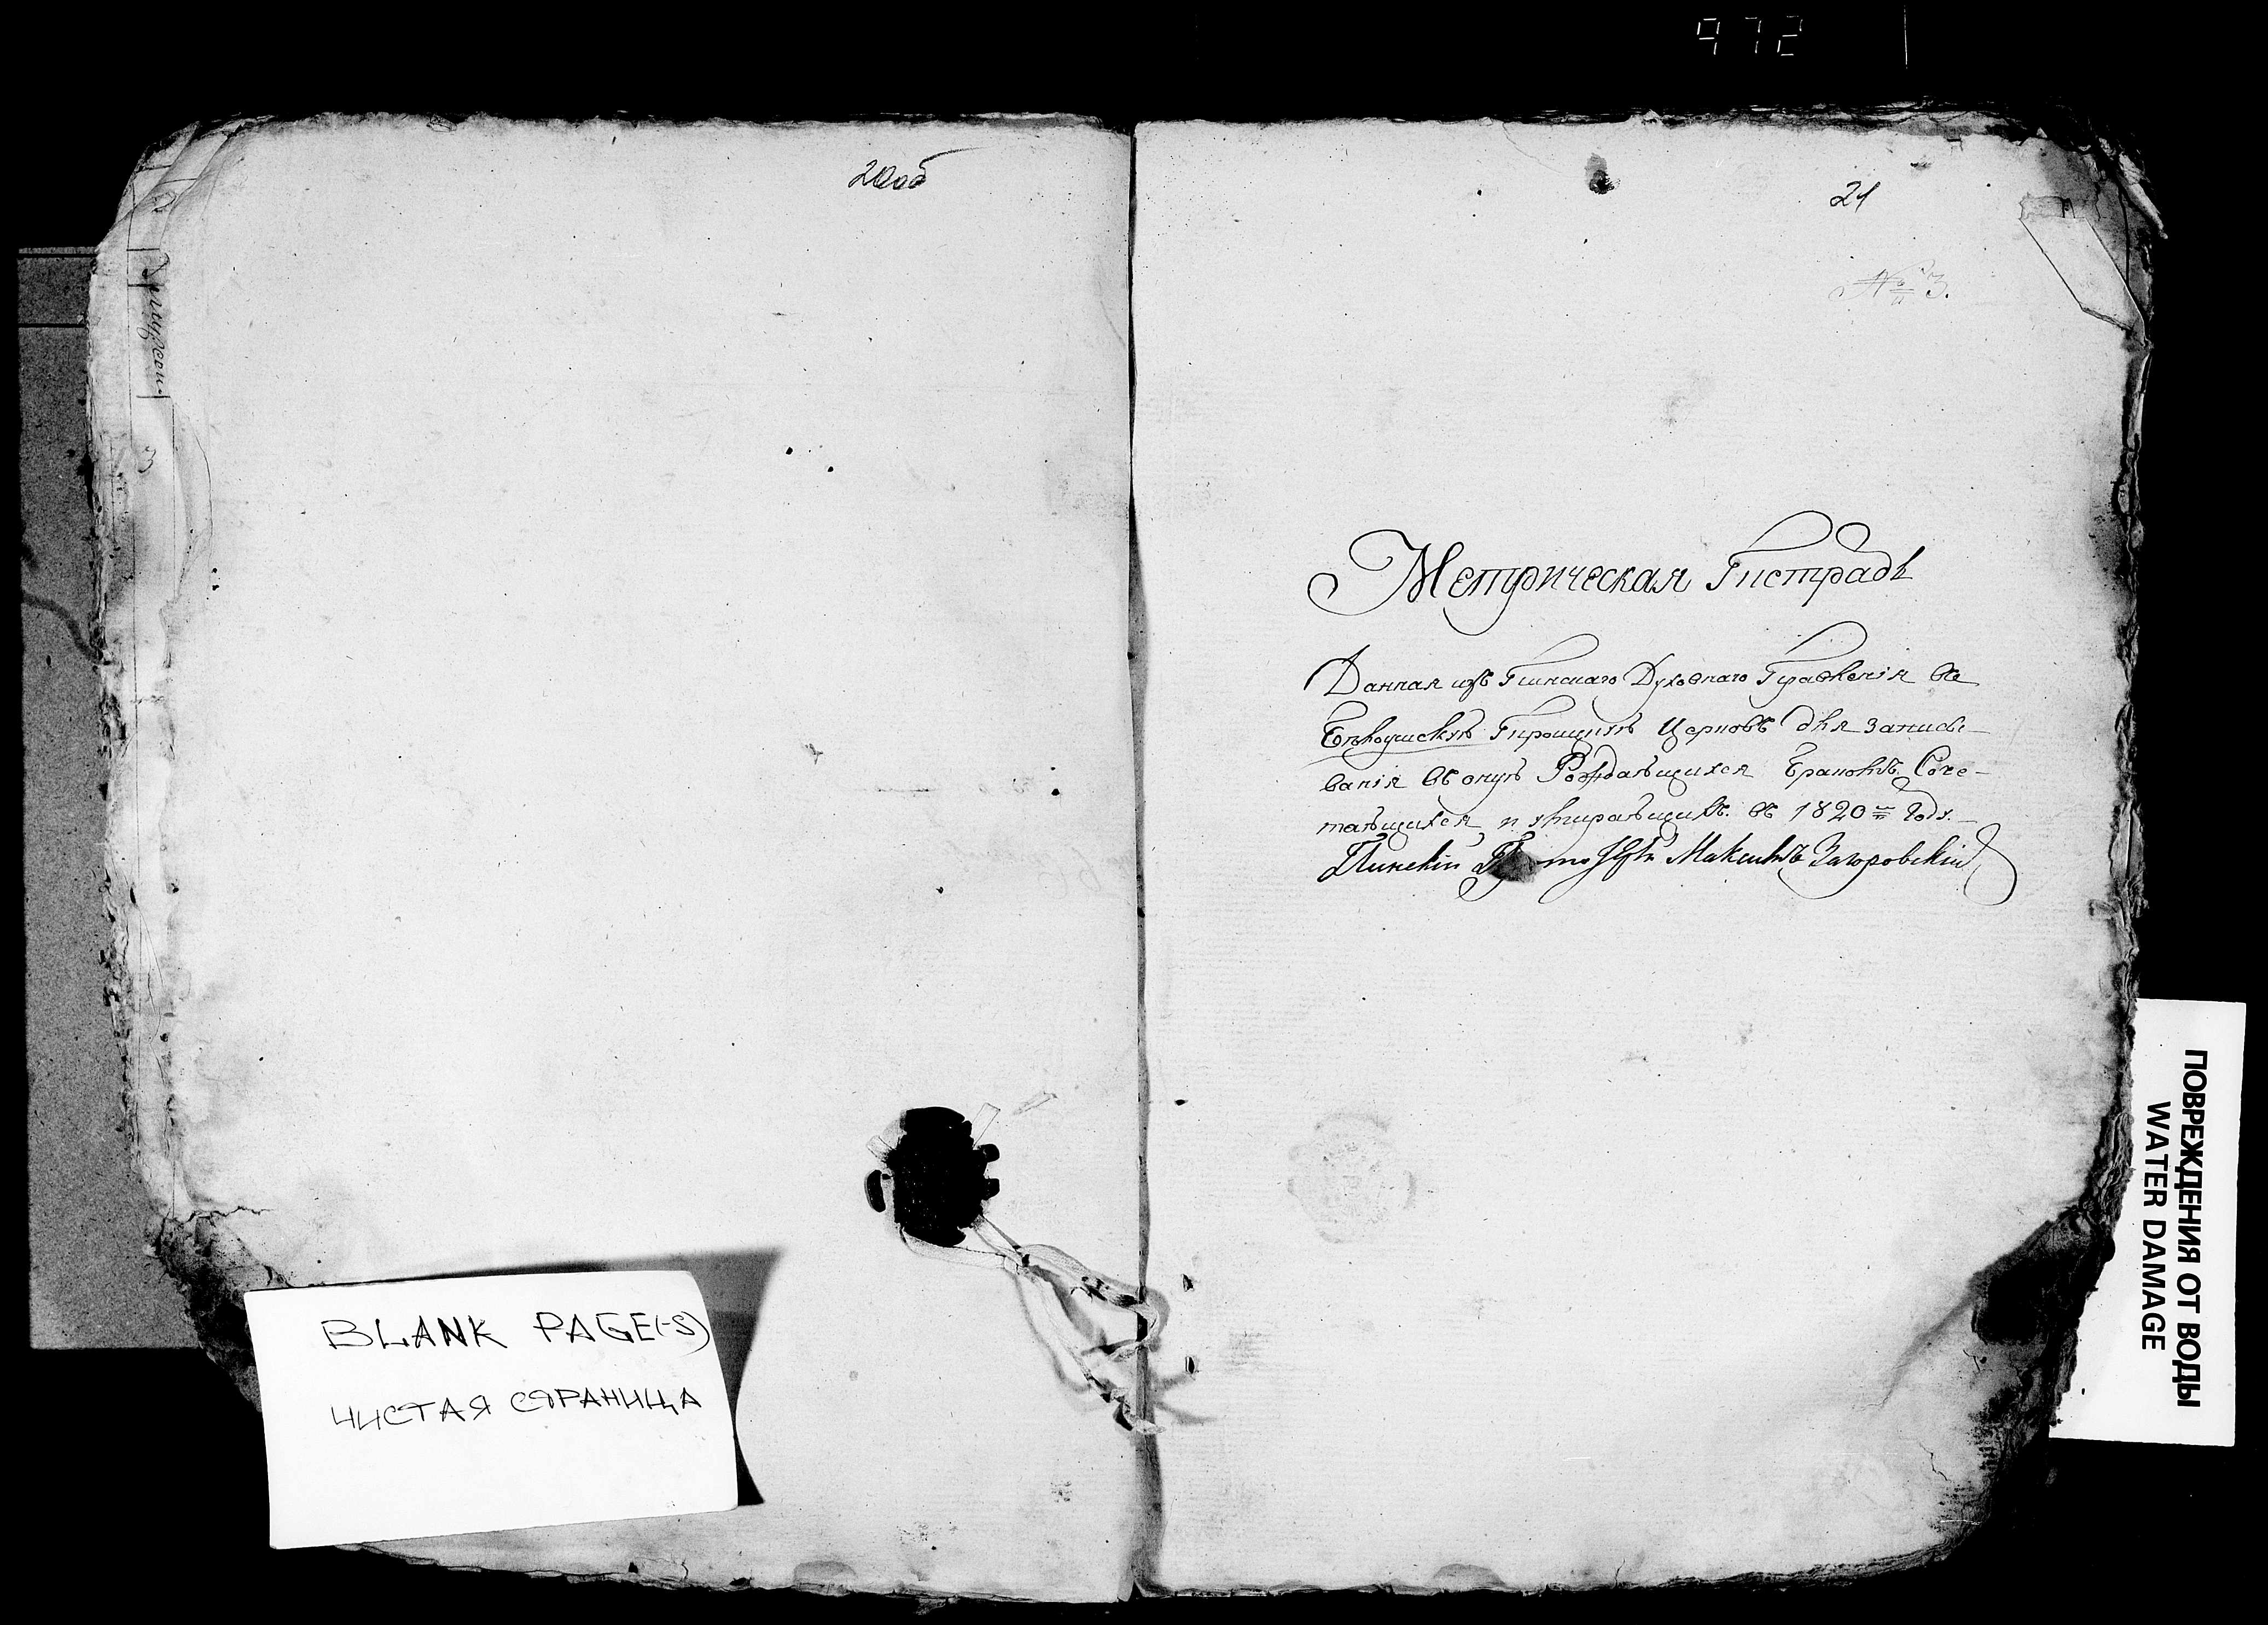 972
20об
21
№ 3.
Метрическая Тистрадь
Данная изъ Пинскаго Духовнаго Правленія въ
Церковь для записы-
ванія въ оную Раждаѣщихся Бракомъ Соче-
таѣщихся и умираѣщихъ въ 1820 Году.
Пинскій Максимъ Загоровскій
BLANK PAGE(-S)
ЧИСТАЯ СТРАНИЦА
ПОВРЕЖДЕНИЯ ОТ ВОДЫ
WATER DAMAGE